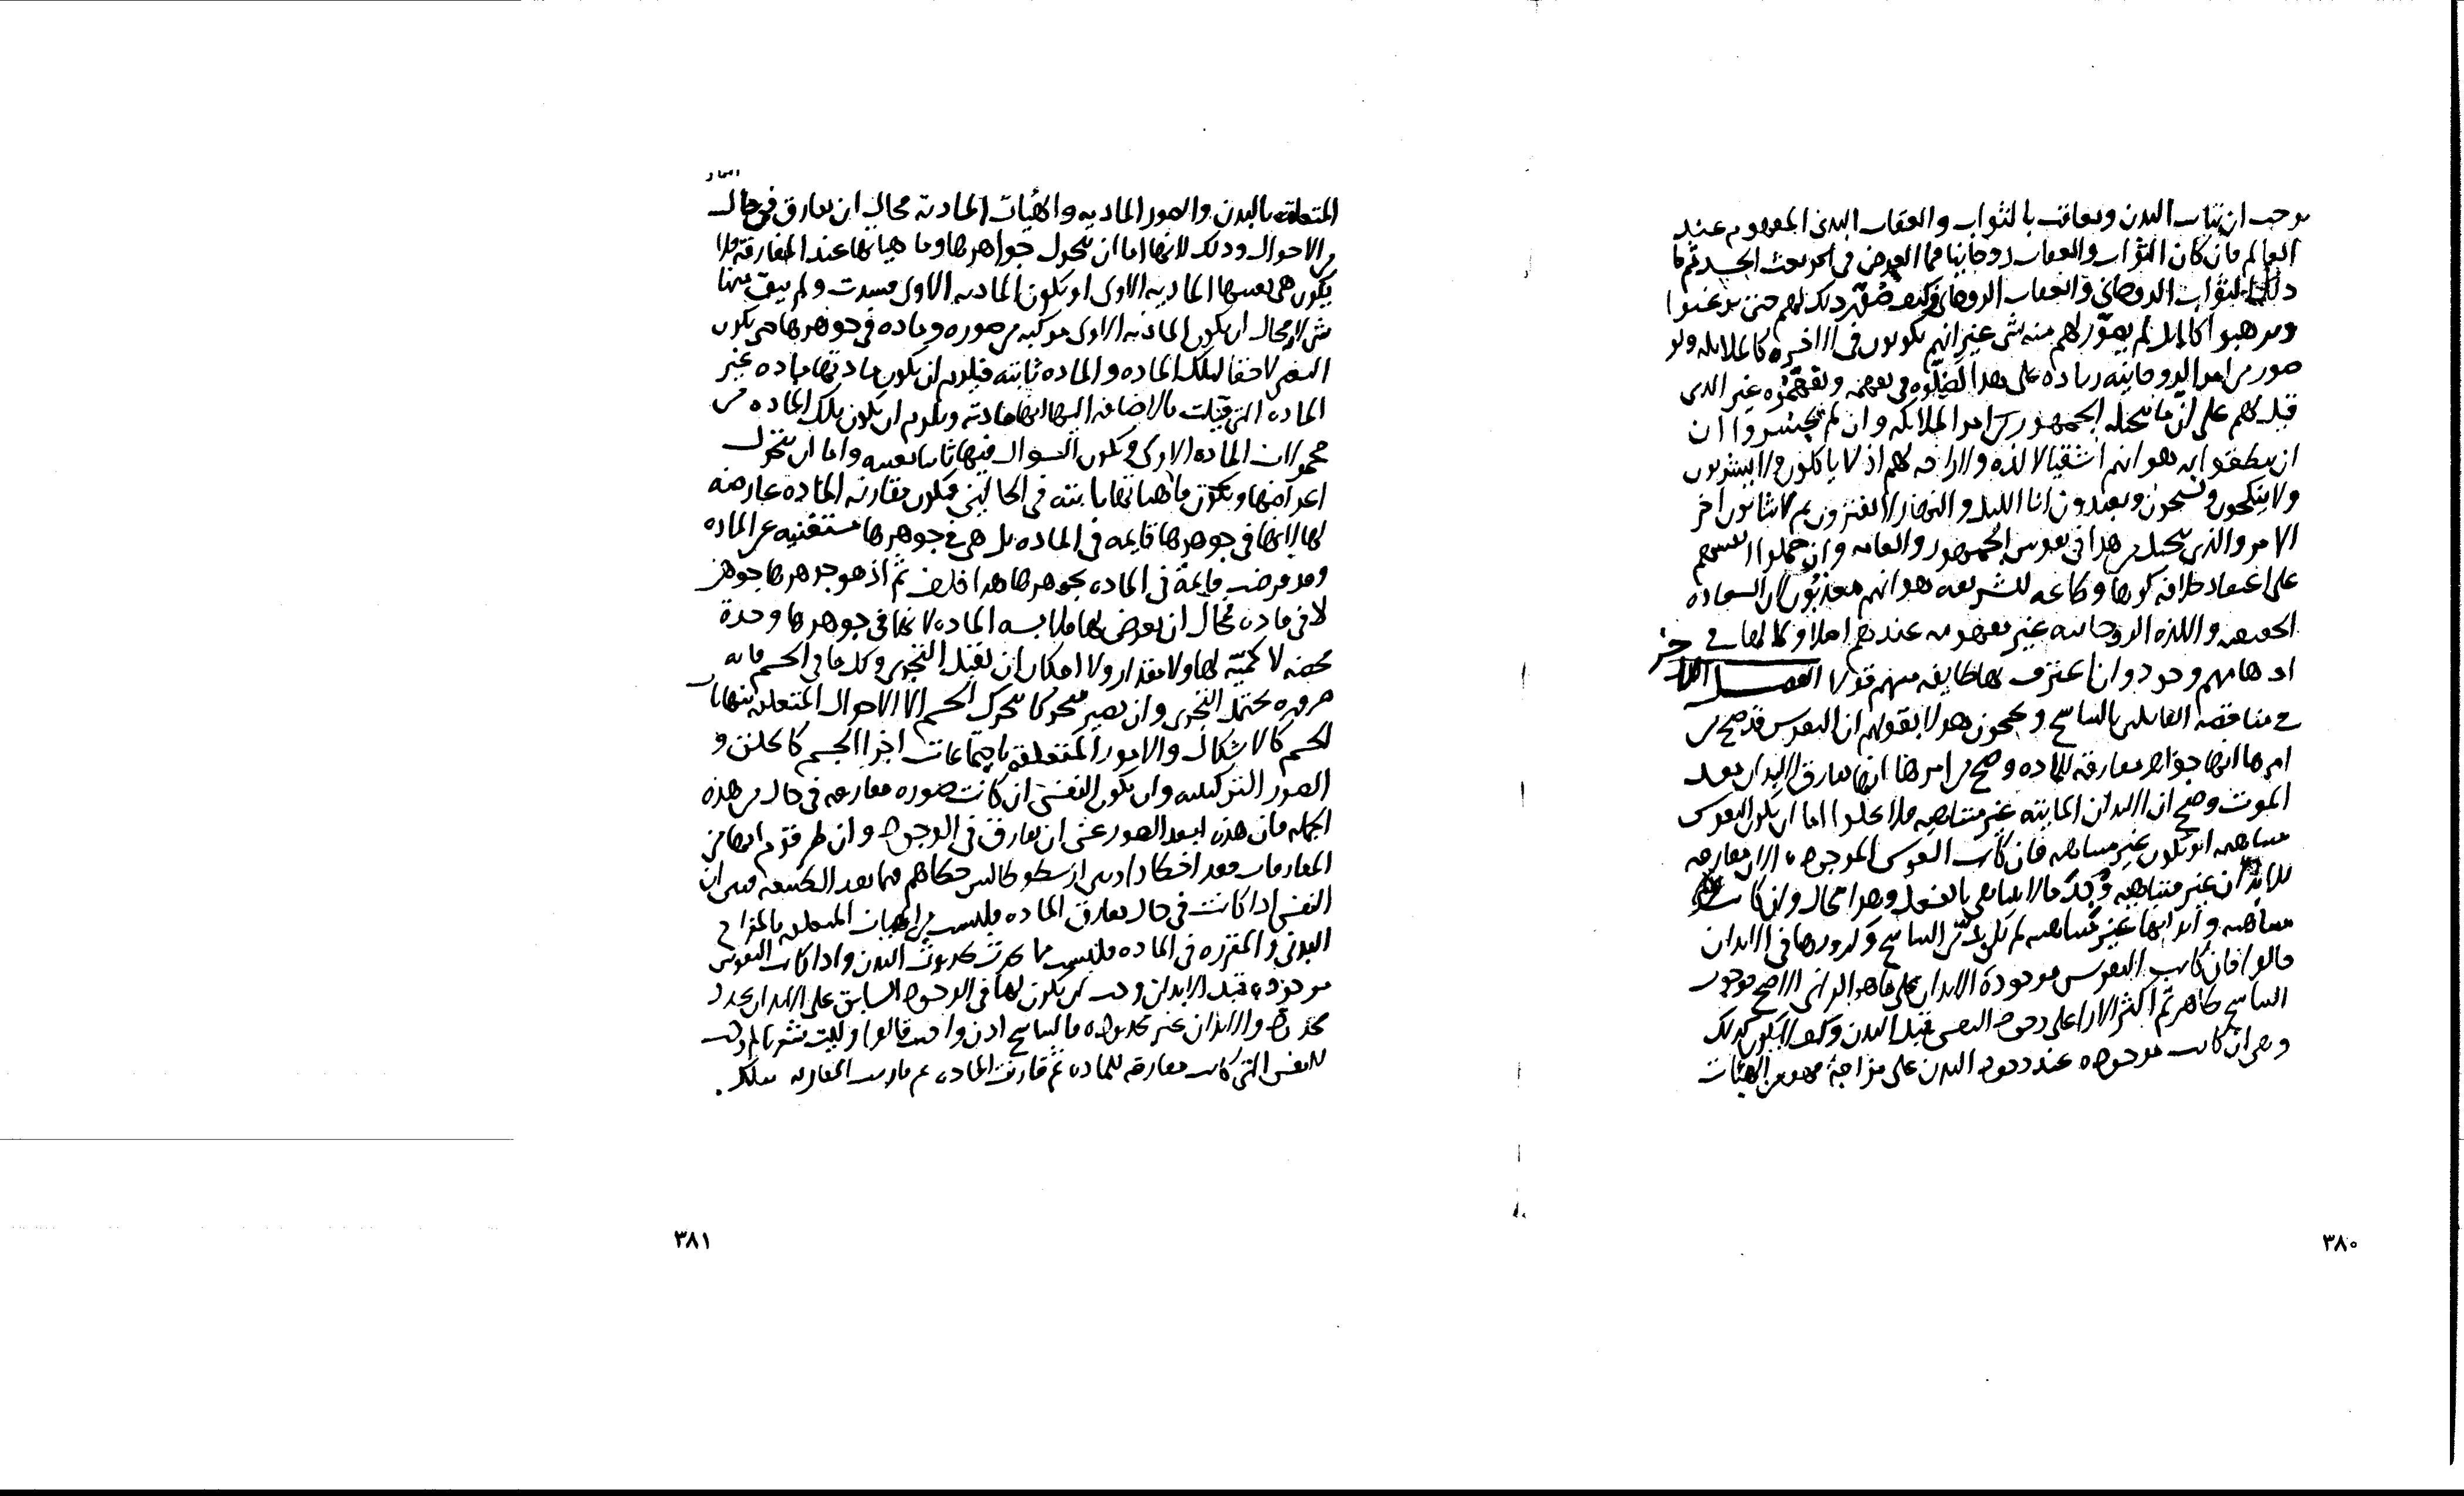 يوجب ان يثاب البدن ويعاقب بالثواب والعقاب البدني المفهوم عند
العالم فان كان الثواب والعقاب روحانيا فما الغرض في بعث الجسد ثم ما
ذلك الثواب الروحاني والعقاب الروحاني وكيف صور ذلك لهم حتى يرغبوا
ويرهبوا كلا بل لم يصور لهم منه شي غير انهم يكونون في الاخره كالملايكه ولو
صور من امر الروحانيه زياده على هذا
قبل لهم على ان ما تخيله الجمهور من امر الملايكه وان لم يجسروا ان
ان ينطقوا به هو انهم اشقيا لا لذه ولا راحه لهم اذ لا ياكلون ولا يشربون
ولا ينكحون ويسبحون ويعبدون انا الليل والنهار لا يفترون ثم لا يثابون اخر
الامر والذي يتخيل من هذا في نفوس الجمهور والعامه وان حملوا انفسهم
على اعتقاد خلافه كرها وطاعه للشريعه هو انهم معذبون لان السعاده
الحقيقيه واللذه الروحانيه غير مفهومه عندهم اصلا ولا لها في
اوهامهم وجود وان اعترف بها طايفه منهم قولا الفصل الاخر
في مناقضه القايلين بالتناسخ ويحتجون هولا بقولهم ان النفوس قد صح من
امرها انها جواهر مفارقه للماده وصح من امرها انها تفارق الابدان بعد
الموت وصح ان الابدان الماييته غير متناهيه فلا يخلوا اما ان يكون النفوس
متناهيه او تكون غير متناهيه فان كانت النفوس الموجوده الان مفارقه
للابدان غير متناهيه وجد ما لا يتناهى بالفعل وهذا محال وان كانت
متناهيه وابدانها غير متناهيه لم يكن بد من التناسخ وكرورها في الابدان
قالوا فان كانت النفوس موجودة الابدان على ما هو الراي الاصح فوجوب
التناسخ ظاهر ثم اكثر الارا على وجود النفس قبل البدن وكيف لا يكون كذلك
وهي ان كانت موجوده عند وجود البدن على مزاجه فهو من الهيئات
المتعلقه بالبدن والصور الماديه والهيئات الماديه محال ان تفارق في حال
من الاحوال وذلك لانها اما ان تتحول جواهرها وماهياتها عند المفارقة فلا
يكون هي بعينها الماديه الاولى او تكون الماديه الاولى فسدت ولم يبق منها
شي لانه محال ان يكون الماديه الاولى مركبه من صوره وماده في جوهرها حتى يكون
التغير لاحقا لتلك الماده والماده ثابته فيلزم ان يكون مادتها ماده غير
الماده التي قيلت بالاضافه اليها انها ماديه ويلزم ان يكون تلك الماده من
محمولات الماده الاولى ويكون السوال فيها ثابتا بعينه واما ان يتحول
اعراضها ويكون ماهياتها ثابته في الحالتين فيكون مقارنه الماده عارضه
لها لا انها في جوهرها قايمه في الماده بل هي في جوهرها مستغنيه عن الماده
وقد فرضت قايمة في الماده بجوهرها هذا خلف ثم اذ هو جوهرها جوهر
لا في ماده محال ان يعرض لها ملابسه الماده لانها في جوهرها وحدة
محضه لا كميّه لها ولا مقدار ولا امكان ان يقبل التجزي وكل ما في الجسم فانه
ضروره يحتمل التجزي وان يصير متحركا بتحرك الجسم الا الاحوال المتعلقه بنهايات
الجسم كالاشكال والامور المتعلقه باجتماعات اجزا الجسم كالحلق و
الصور التركيبيه وان يكون النفس ان كانت صوره مفارقه في حال من هذه
الجمله فان هذه ابعد الصور عن ان تفارق في الوجود وان ظن قوم انها من
المفارقات فقد اخطا وا وبين ارسطوطاليس خطاهم فيما بعد الطبيعه فبين ان
النفس اذا كانت في حال يفارق الماده فليست من الهيات المتعلقه بالمزاج
البدني والمقرره في الماده فليست مما يحدث بحدوث البدن واذا كانت النفوس
موجوده قبل الابدان وجب ان يكون لها في الوجود السابق على الابدان عدد
محدود والابدان غير محدوده فالتناسخ اذن واجب قالوا وليت شعرنا لم وجب
للنفس التي كانت مفارقه للماده ثم قارنت الماده
٣٨١
٣٨٠